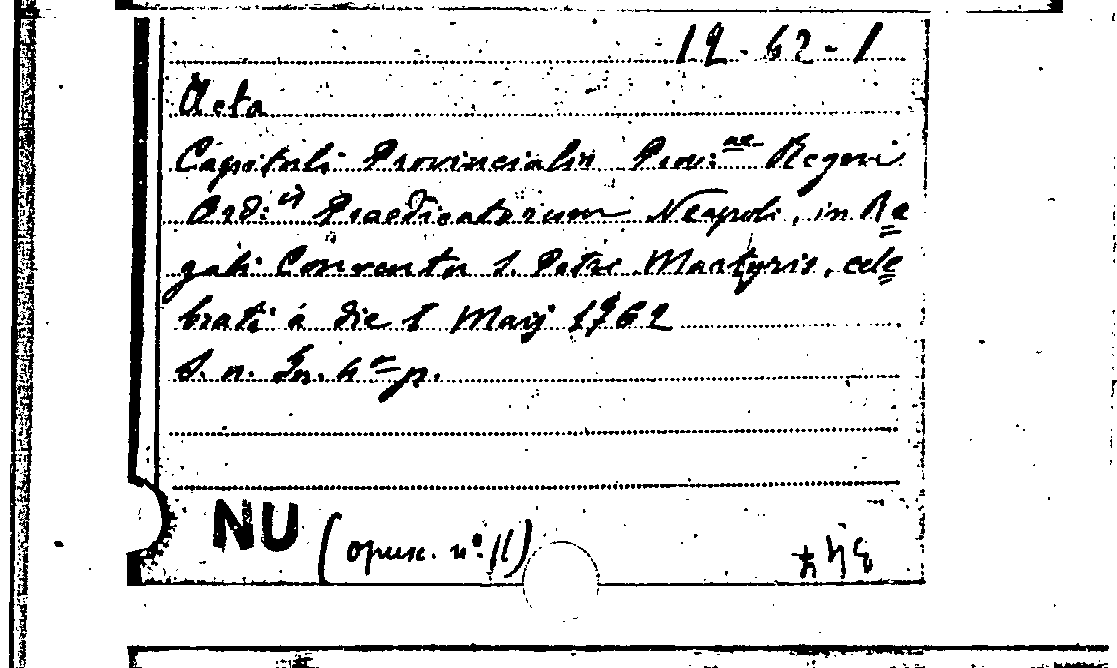 19-62-1
Acta
Capituli Provincialis Prov:ae Regni
Ord:is Praedicatorum Neapoli, in Re
gali Conventu S. Petri Martyris, cele
brati á die 1 Maij 1762
S. n. In. 4º p.
NU (opusc. nº. 11)